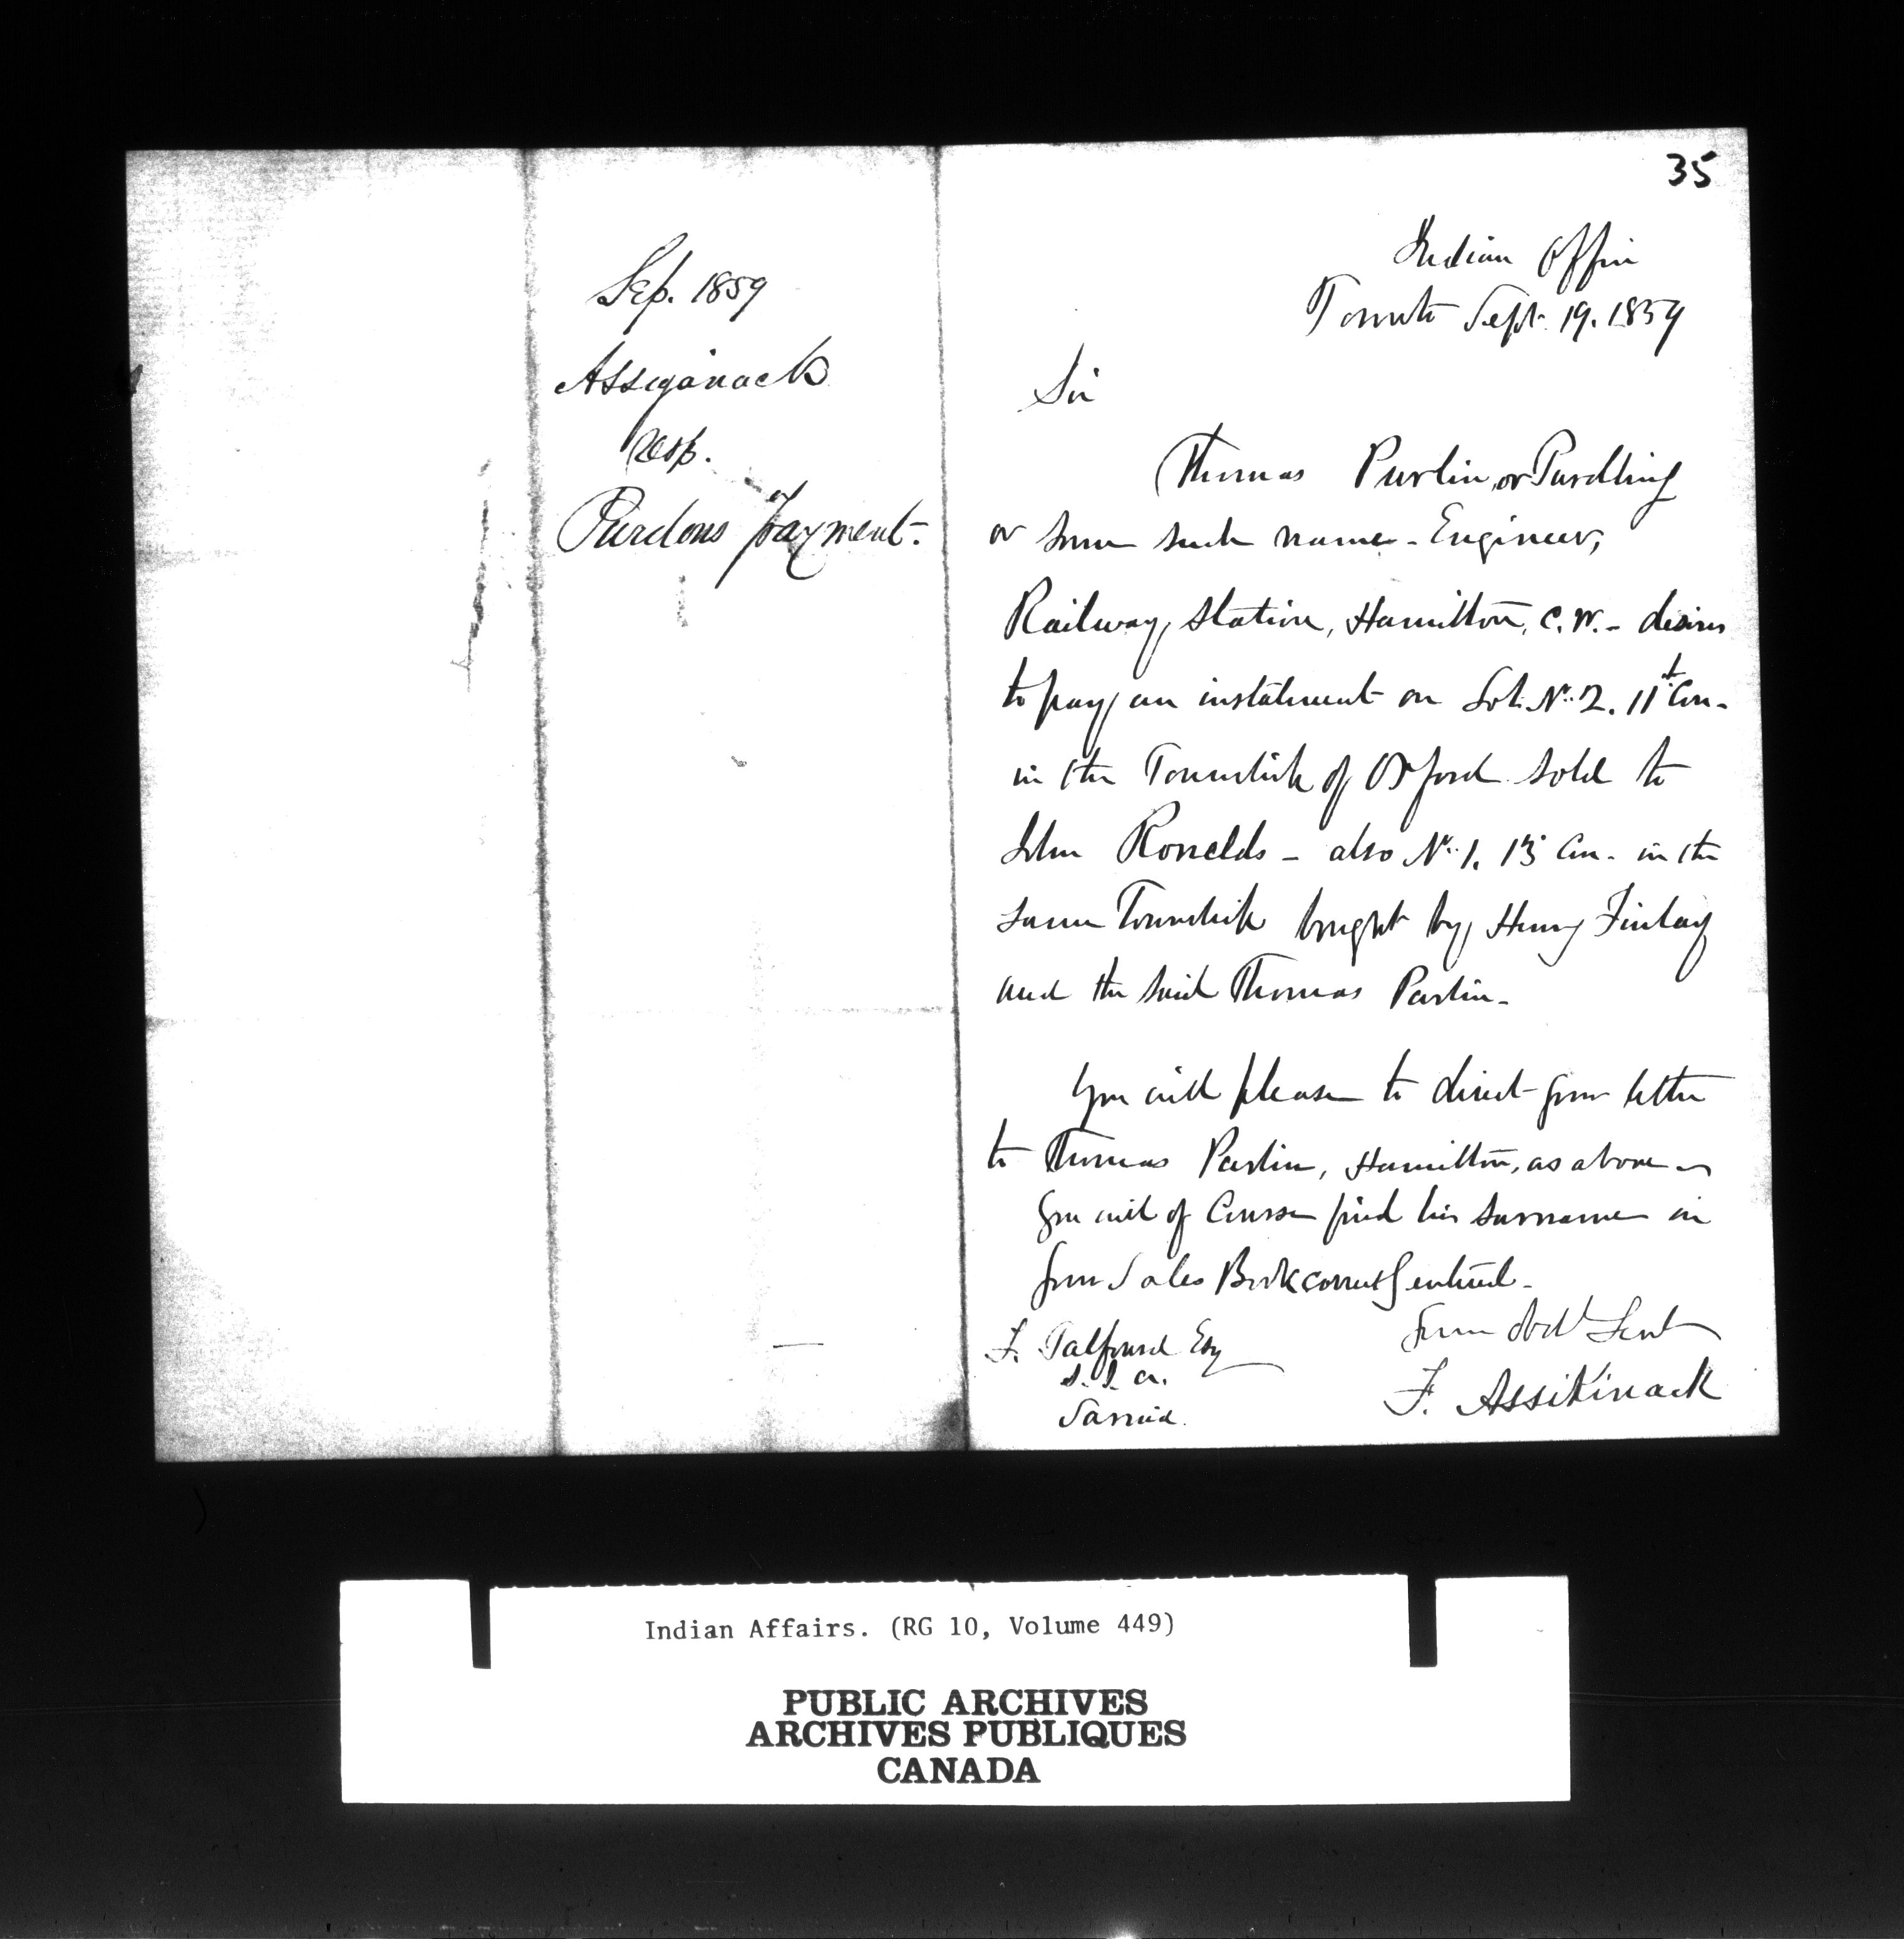 35
Sep. 1859
Assiganack
resp.
Purdons payment.
Indian Office
Toronto Sept. 19. 1859
Sir
Thomas Purlin, or Purdling
or some such name - Engineer,
Railway Station, Hamilton, C.W. - desires
to pay an instalment on Lot. No. 2. 11th Con.
in the Township of Oxford sold to
John Ronelds - also No. 1. 13 Con. in the
same Township bought by Henry Finlay
and the said Thomas Parlin.
You will please to direct your letter
to Thomas Parlin, Hamilton, as above -
You will of Course find his surname in
your Sales Book correctly entered.
Your Obdt Servt
F. Assikinack
F. Talfourd Esq
S. I. A.
Sarnia.
Indian Affairs. (RG 10, Volume 449)
PUBLIC ARCHIVES
ARCHIVES PUBLIQUES
CANADA